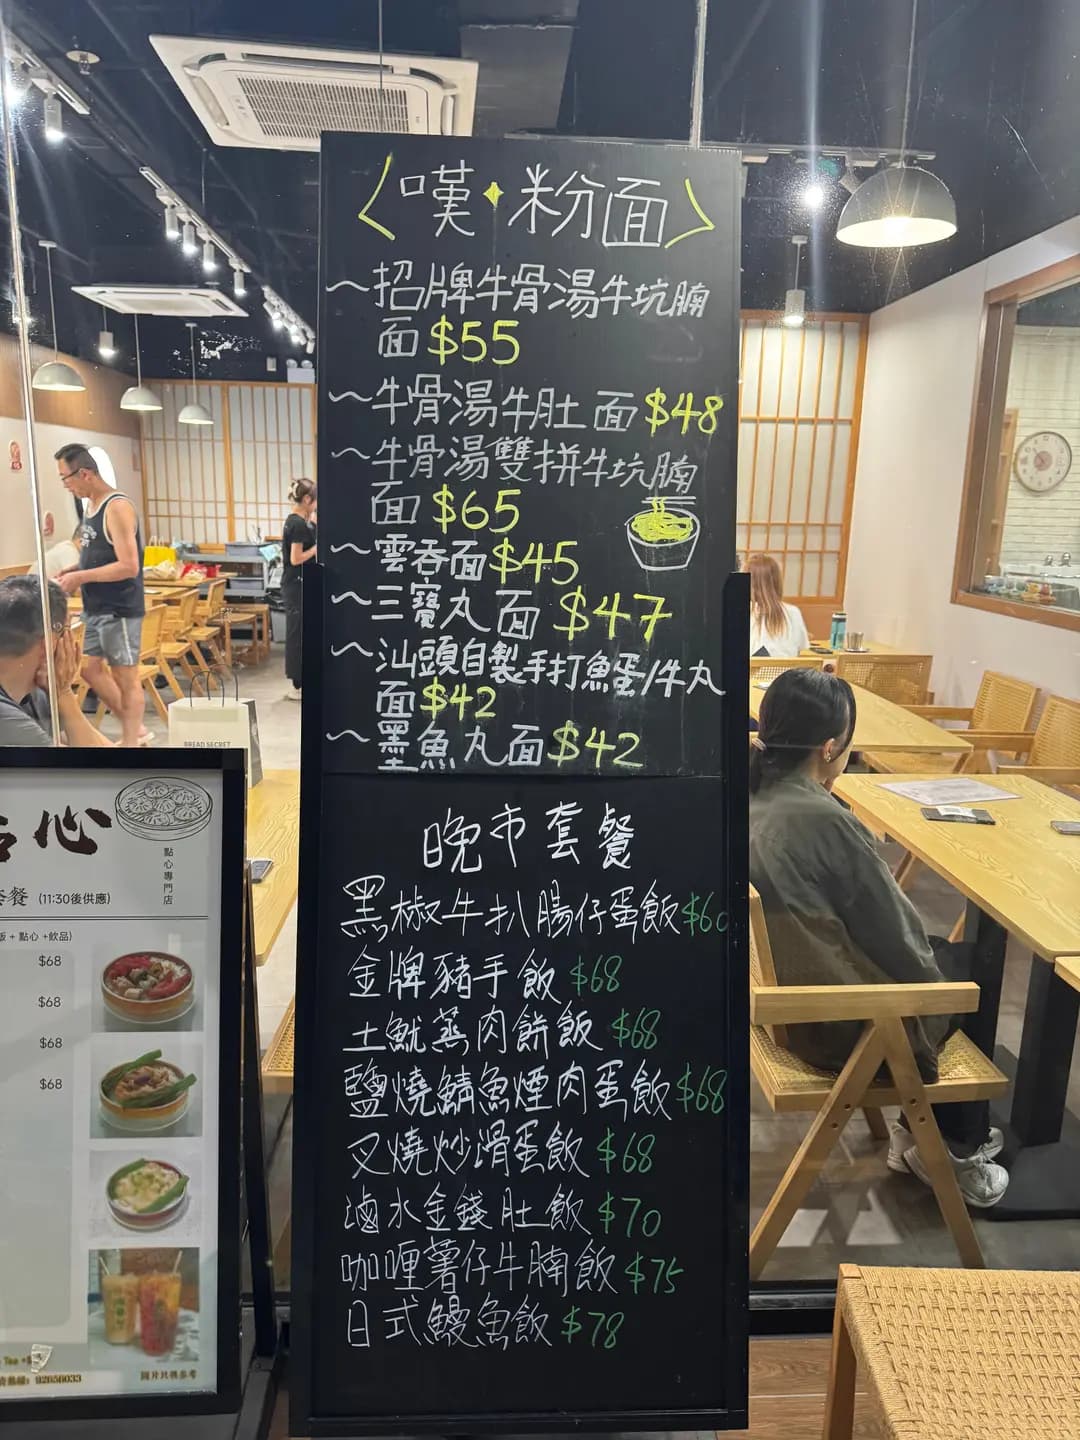 〈嘆✦粉面〉
~招牌牛骨湯牛坑腩
面 $55
~牛骨湯牛肚面 $48
~牛骨湯雙拼牛坑腩
面 $65
~雲吞面 $45
~三寶丸面 $47
~汕頭自製手打魚蛋/牛丸
面 $42
~墨魚丸面 $42
晚市套餐
黑椒牛扒腸仔蛋飯 $60
金牌豬手飯 $68
土魷蒸肉餅飯 $68
鹽燒鯖魚煙肉蛋飯 $68
叉燒炒滑蛋飯 $68
滷水金錢肚飯 $70
咖喱薯仔牛腩飯 $75
日式鰻魚飯 $78
BREAD SECRET
心
點心專門店
餐 (11:30後供應)
飯 + 點心 +飲品)
$68
$68
$68
$68
Tea +$
92656033
圖片只供參考